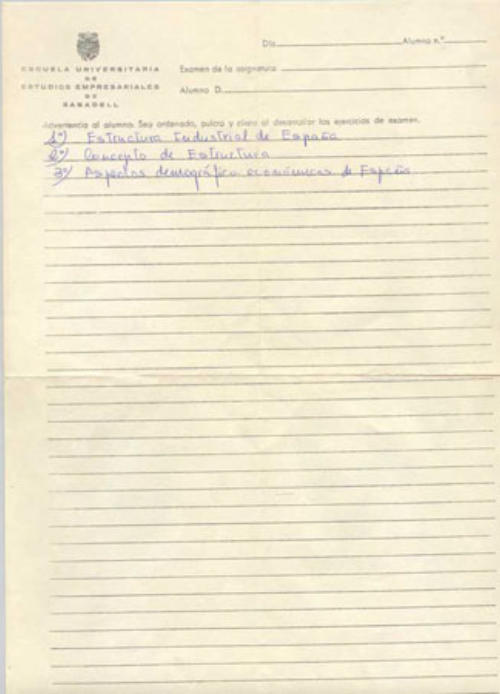 Día Alumno n.º
ESCUELA UNIVERSITARIA
DE
ESTUDIOS EMPRESARIALES
DE
SABADELL
Examen de la asignatura
Alumno D.
Advertencia al alumno. Sea ordenado, pulcro y claro al desarrollar los ejercicios de examen.
1º) Estructura Industrial de España
2º) Concepto de Estructura
3º) Aspectos demográfico económicos de España